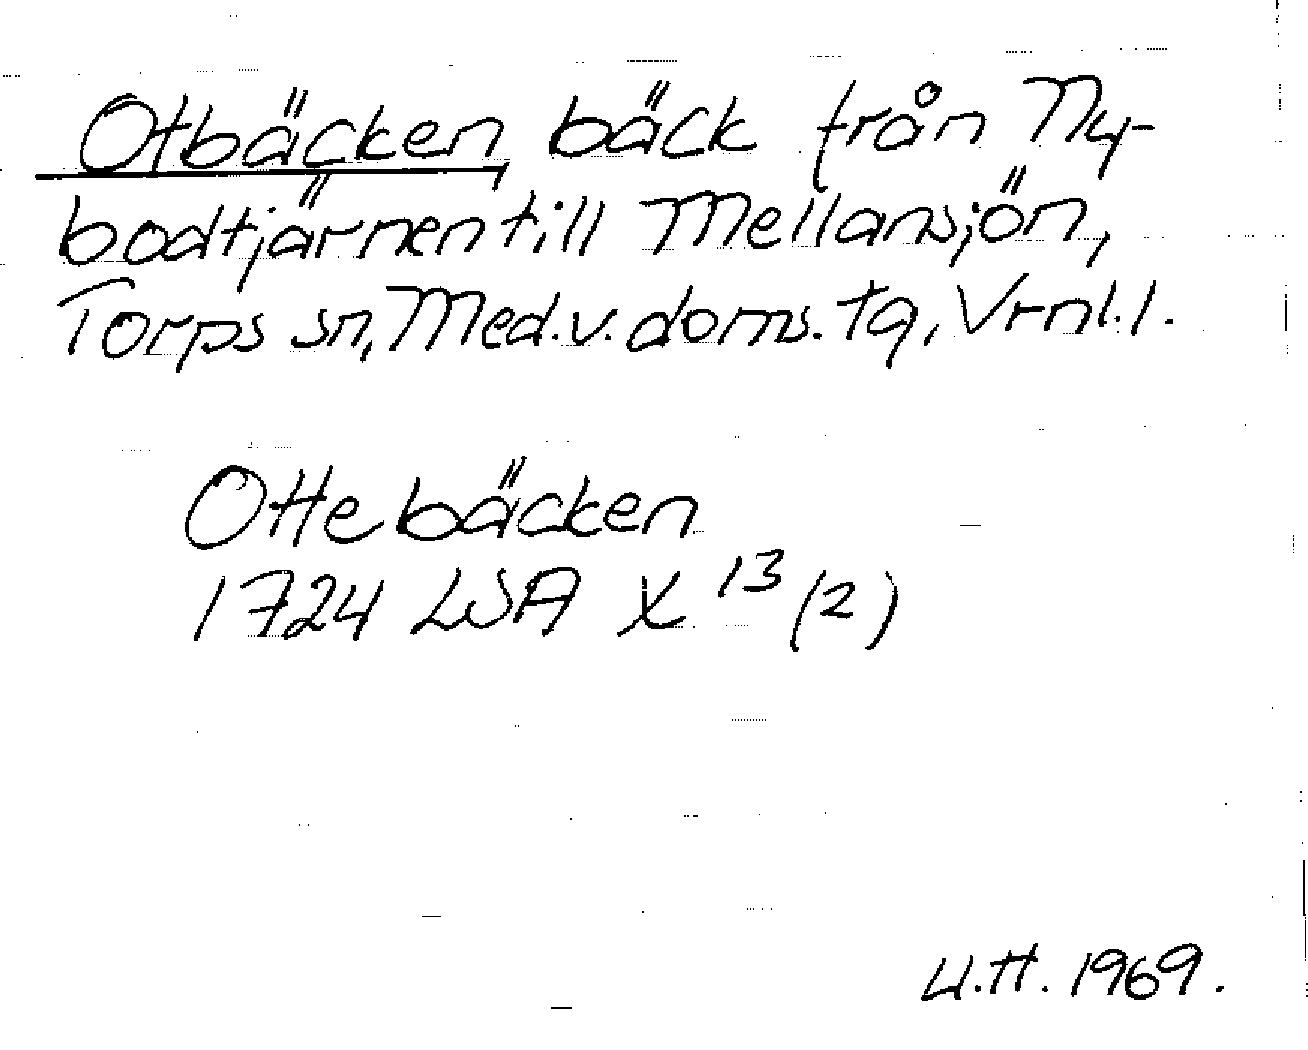 Otbäcken, bäck från Ny-
bodtjärnen till Mellansjön,
Torps sn, Med.v.doms.tg, Vrnl.l.
Ottebäcken
1724 LSA X 13 (2)
U.H. 1969.